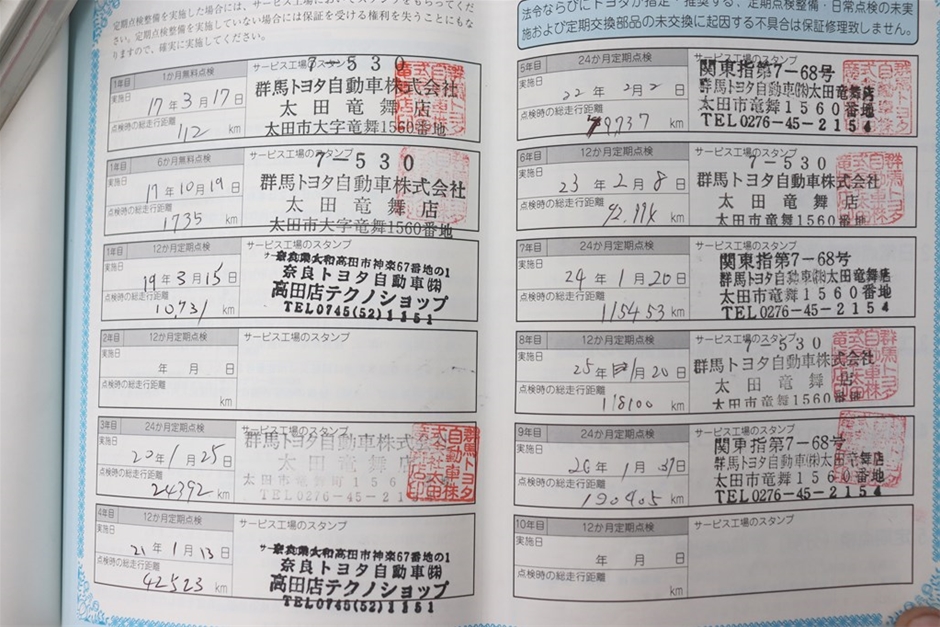 定期点検整備を実施した場合には、サービス工場においてスタンプをもらってくだ
さい。定期点検整備を実施していない場合には保証を受ける権利を失うことにもな
りますので、確実に実施してください。
1年目 1か月無料点検 サービス工場のスタンプ
7-530
実施日
17年3月17日
群馬トヨタ自動車株式会社
太田竜舞店
点検時の総走行距離
112 km
太田市大字竜舞1560番地
1年目 6か月無料点検 サービス工場のスタンプ
7-530
実施日
17年10月19日
群馬トヨタ自動車株式会社
太田竜舞店
点検時の総走行距離
1735 km
太田市大字竜舞1560番地
1年目 12か月定期点検 サービス工場のスタンプ
実施日
19年3月15日
奈良トヨタ自動車㈱
点検時の総走行距離
10,731 km
高田店テクノショップ
TEL0745(52)1151
2年目 12か月定期点検 サービス工場のスタンプ
実施日
年 月 日
点検時の総走行距離
km
3年目 24か月定期点検 サービス工場のスタンプ
実施日
20年1月25日
群馬トヨタ自動車株式会社
太田竜舞店
点検時の総走行距離
24392 km
TEL 0276-45-2154
4年目 12か月定期点検 サービス工場のスタンプ
実施日
21年1月13日
奈良トヨタ自動車㈱
点検時の総走行距離
42523 km
高田店テクノショップ
TEL0745(52)1151
法令ならびにトヨタが指定・推奨する、定期点検整備・日常点検の未実
施および定期交換部品の未交換に起因する不具合は保証修理致しません。
5年目 24か月定期点検 サービス工場のスタンプ
関東指第7-68号
実施日
22年2月2日
群馬トヨタ自動車㈱太田竜舞店
太田市竜舞1560番地
点検時の総走行距離
km
TEL0276-45-2154
6年目 12か月定期点検 サービス工場のスタンプ
7-530
実施日
23年2月8日
群馬トヨタ自動車株式会社
太田竜舞店
点検時の総走行距離
km
太田市大字竜舞1560番地
7年目 24か月定期点検 サービス工場のスタンプ
関東指第7-68号
実施日
24年1月20日
群馬トヨタ自動車㈱太田竜舞店
太田市竜舞1560番地
点検時の総走行距離
115453 km
TEL0276-45-2154
8年目 12か月定期点検 サービス工場のスタンプ
7-530
実施日
25年1月20日
群馬トヨタ自動車株式会社
太田竜舞店
点検時の総走行距離
118100 km
太田市大字竜舞1560番地
9年目 24か月定期点検 サービス工場のスタンプ
関東指第7-68号
実施日
26年1月 日
群馬トヨタ自動車㈱太田竜舞店
太田市竜舞1560番地
点検時の総走行距離
190405 km
TEL0276-45-2154
10年目 12か月定期点検 サービス工場のスタンプ
実施日
年 月 日
点検時の総走行距離
km